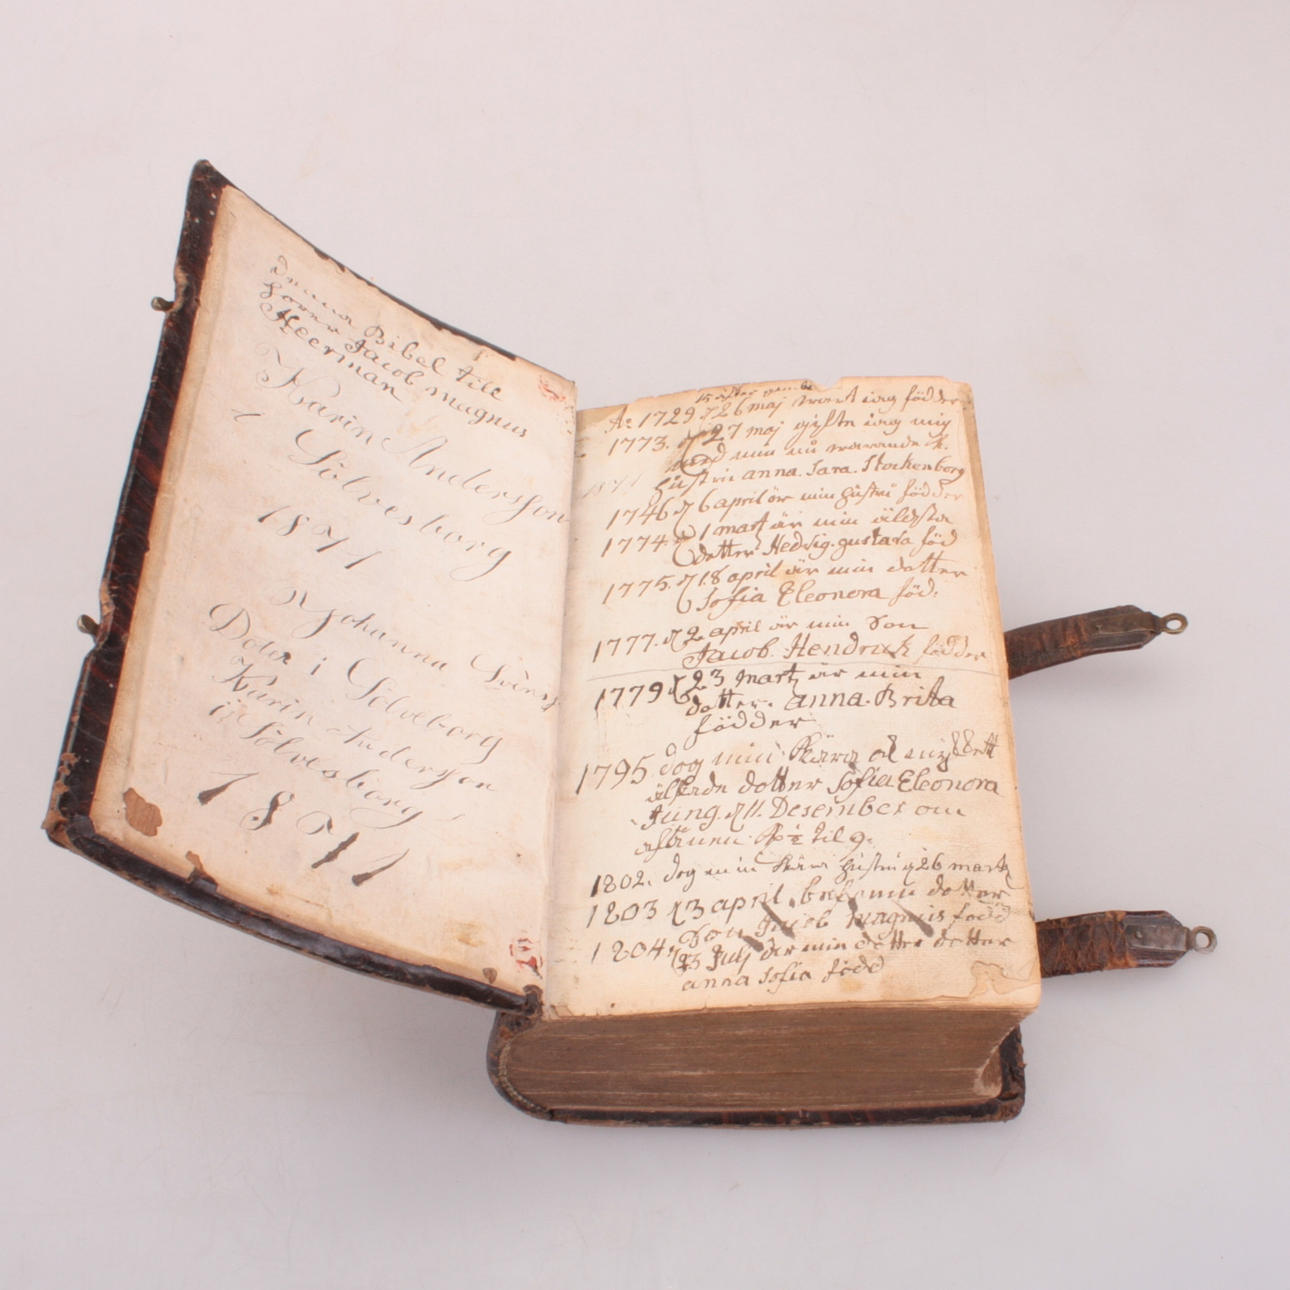 Denna Bibel till
hörer Jacob magnus
Heerman
Karin Andersson
i Sölvesborg
1871
Johanna Svens
Doter i Sölveborg
Karin Andersson
i Sölvesborg
1871
Ao 1729 d 26 maj wart iag födder
1773. d 27 maj gifte iag mig
med min nu warande k.
hustru anna. Sara. Stockenborg
1871
1746 d 6 april är min hustru födder
1774 d 1 mart är min äldsta
dotter Hedvig. gustava föd
1775. d 18 april är min dotter
Sofia Eleonora föd:
1777. d 2 april är min Son
Jacob. Hendrick födder
1779 d 23 martz är min
dotter. anna. Brita
födder
1795 dog min kära och mykett
älskade dotter Sofia Eleonora
d 11. Desember om
aftonen Kl ½ til 9.
1802. dog min kära hustru d 26 martz
1803 d 3 april min dotter
Son Jacob magnus född
1804. d 23 Julj är min dotter dotter
anna Sofia född